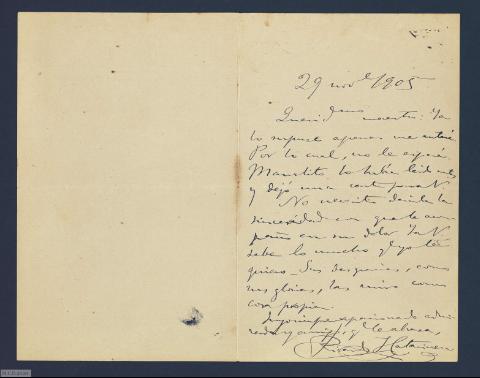 29 nov.e 1905
Querid.mo maestro: Ya
lo supe apenas me enteré.
Por lo cual, no le esperé.
Manolito lo había leído antes
y dejó una carta para V.
No necesito decirle la
sinceridad con que le acom
paño en su dolor. Ya V.
sabe lo mucho q. yo le
quiero. Sus desgracias, como
sus glorias, las miro como
cosa propia.
Suyo siempre apasionado admi
rador y amigo, q. le abraza,
Ricardo J. Catarineu